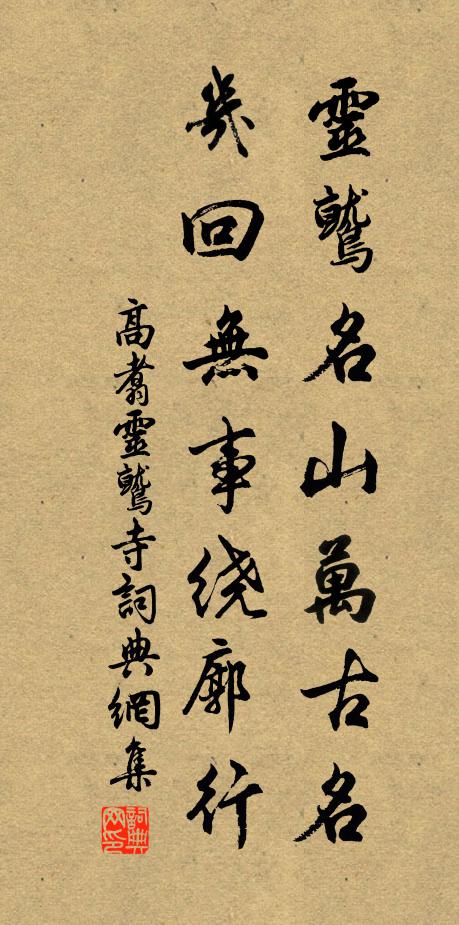 靈鷲名山萬古名
幾回無事绕廓行
高翥靈鷲寺詞典網集
詞典网印